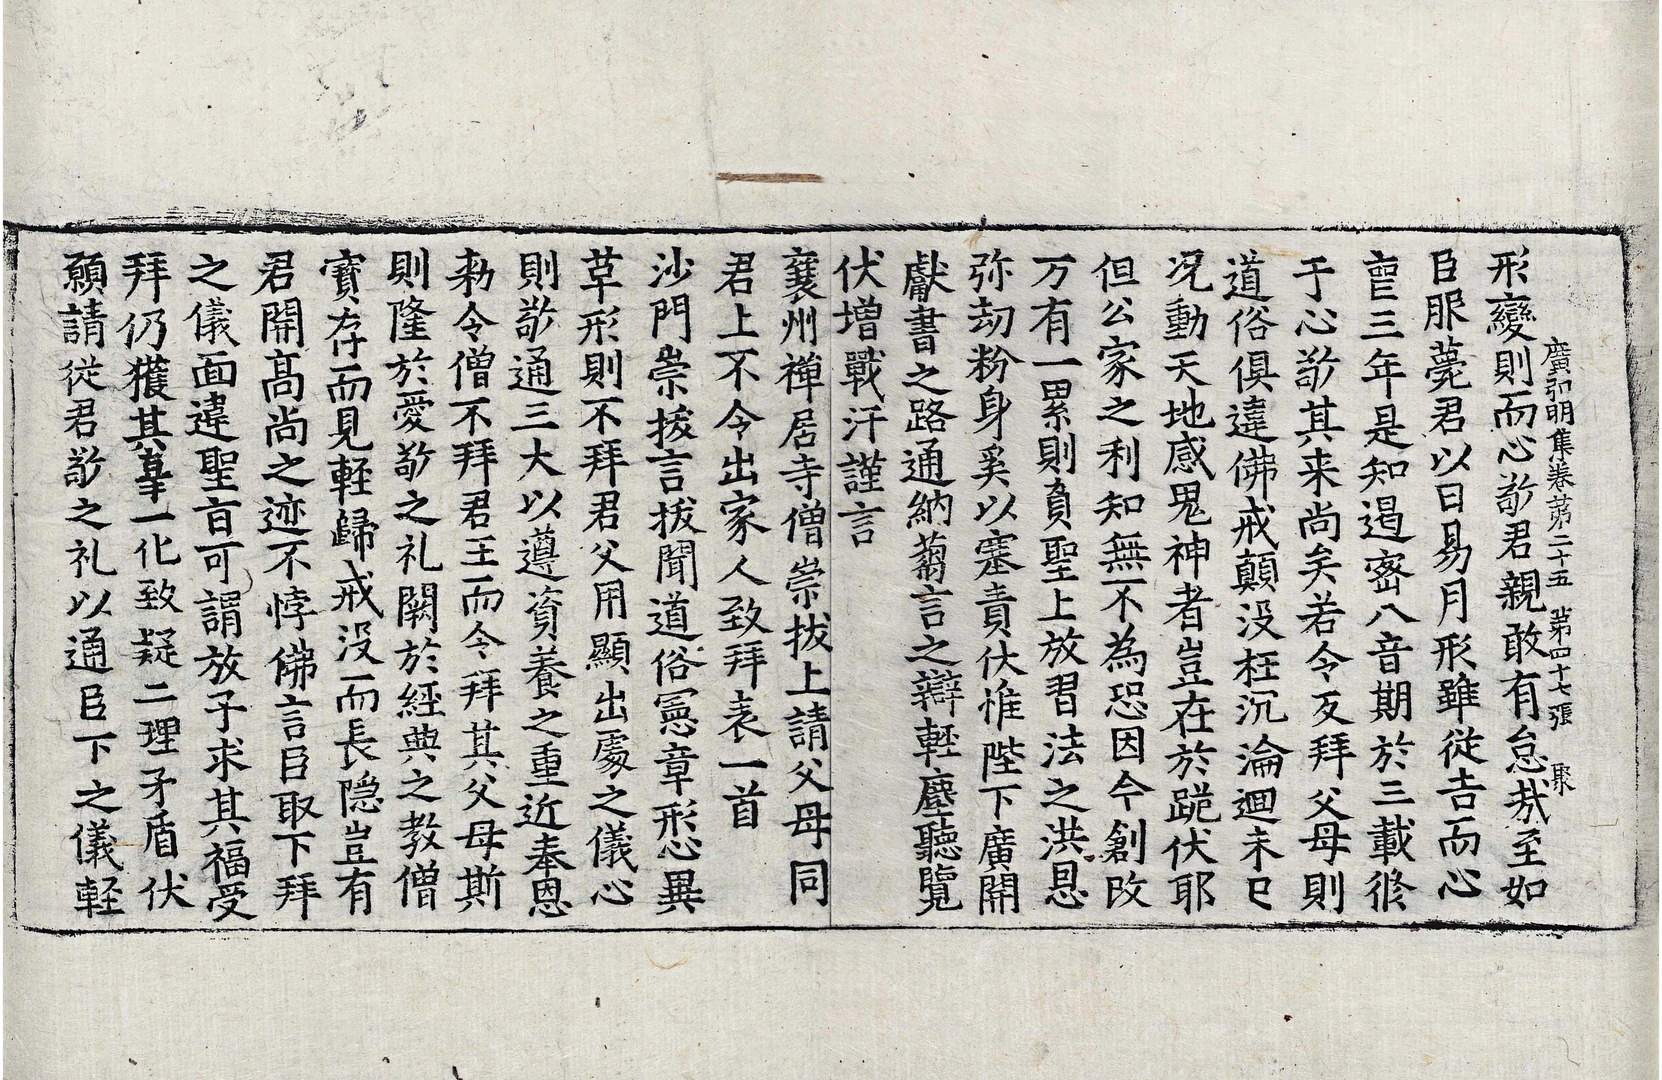 廣弘明集卷苐二十五 第四十七張 聚
形變則而心敬君親敢有怠㢤至如
臣服薨君以日易月形雖従吉而心
䘮三年是知遏密八音期於三載修
于心敬其来尚矣若令反拜父母則
道俗俱違佛戒顛没枉沉淪迴未已
况動天地感鬼神者豈在於跪伏耶
但公家之利知無不為恐因今創改
万有一累則負聖上放習法之洪恩
弥劫粉身奚以塞責伏惟陛下廣開
獻書之路通納蒭言之辯軽塵聽覽
伏增戰汗謹言
襄州禅居寺僧崇拔上請父母同
君上不令出家人致拜表一首
沙門崇拔言拔聞道俗憲章形心異
草形則不拜君父用顯出處之儀心
則敬通三大以遵資養之重近奉恩
勑令僧不拜君王而令拜其父母斯
則隆於愛敬之礼闕於經典之教僧
寳存而見軽歸戒没而長隠豈有
君開髙尚之迹不悖佛言臣取下拜
之儀面違聖旨可謂放子求其福受
拜仍獲其辜一化致疑二理矛盾伏
願請従君敬之礼以通臣下之儀軽